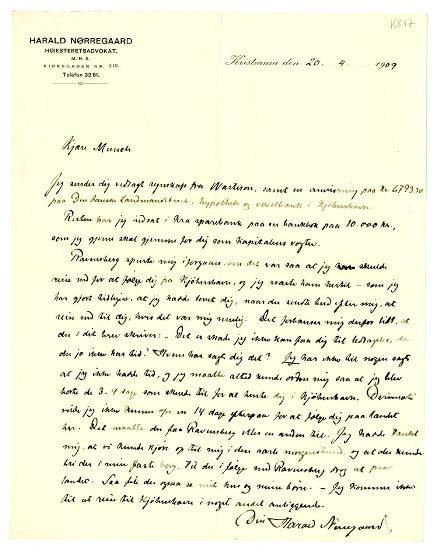 K 847
HARALD NØRREGAARD
HØIESTERETSADVOKAT.
M. H. S.
KIRKEGADEN NR.
Telefon 3261.
Kristiania den 20 - 4 - 1909
Kjære Munch
Jeg sender dig vedlagt regnskap fra Warburton, samt en anvisning paa Kr. 6793.30
paa Den danske Landmandsbank, hypothek og vexelbank i Kjøbenhavn.
Resten har jeg indsat i Kra sparebank paa en bankbok paa 10.000 kr,
som jeg gjerne skal gjemme for dig som Kapitalens vogter.
Ravensberg spurte mig i forgaars om det var saa at jeg skulde
reise ned for at følge dig fra Kjøbenhavn, og jeg svarte ham hertil - som jeg
har gjort tidligere, at jeg hadde lovet dig, naar du sendte bud efter mig, at
reise ned til dig, hvis det var mig mulig. Det forbauser mig derfor litt, at
du i dit brev skriver: „Det er skade jeg ikke kan faa dig til ledsagelse, da
du jo ikke har tid." Hvem har sagt dig det? Jeg har ikke til nogen sagt
at jeg ikke hadde tid, og jeg maatte altid kunde ordne mig saa at jeg blev
borte de 3-4 dage som skulde til for at hente dig i Kjøbenhavn. Derimot
vilde jeg ikke kunne en 14 dage for at følge dig paa landet
her. Det maatte du faa Ravensberg eller en anden til. Jeg hadde tænkt
mig, at vi kunde kjøre op til mig i den mørke og at du kunde
bo der i min Til du i følge med Ravensberg drog ut paa
landet. Saa fik du ogsaa se mit hus og mine høns. - Jeg kommer ikke
til at reise til Kjøbenhavn i noget andet anliggende.
Din Harald Nørregaard